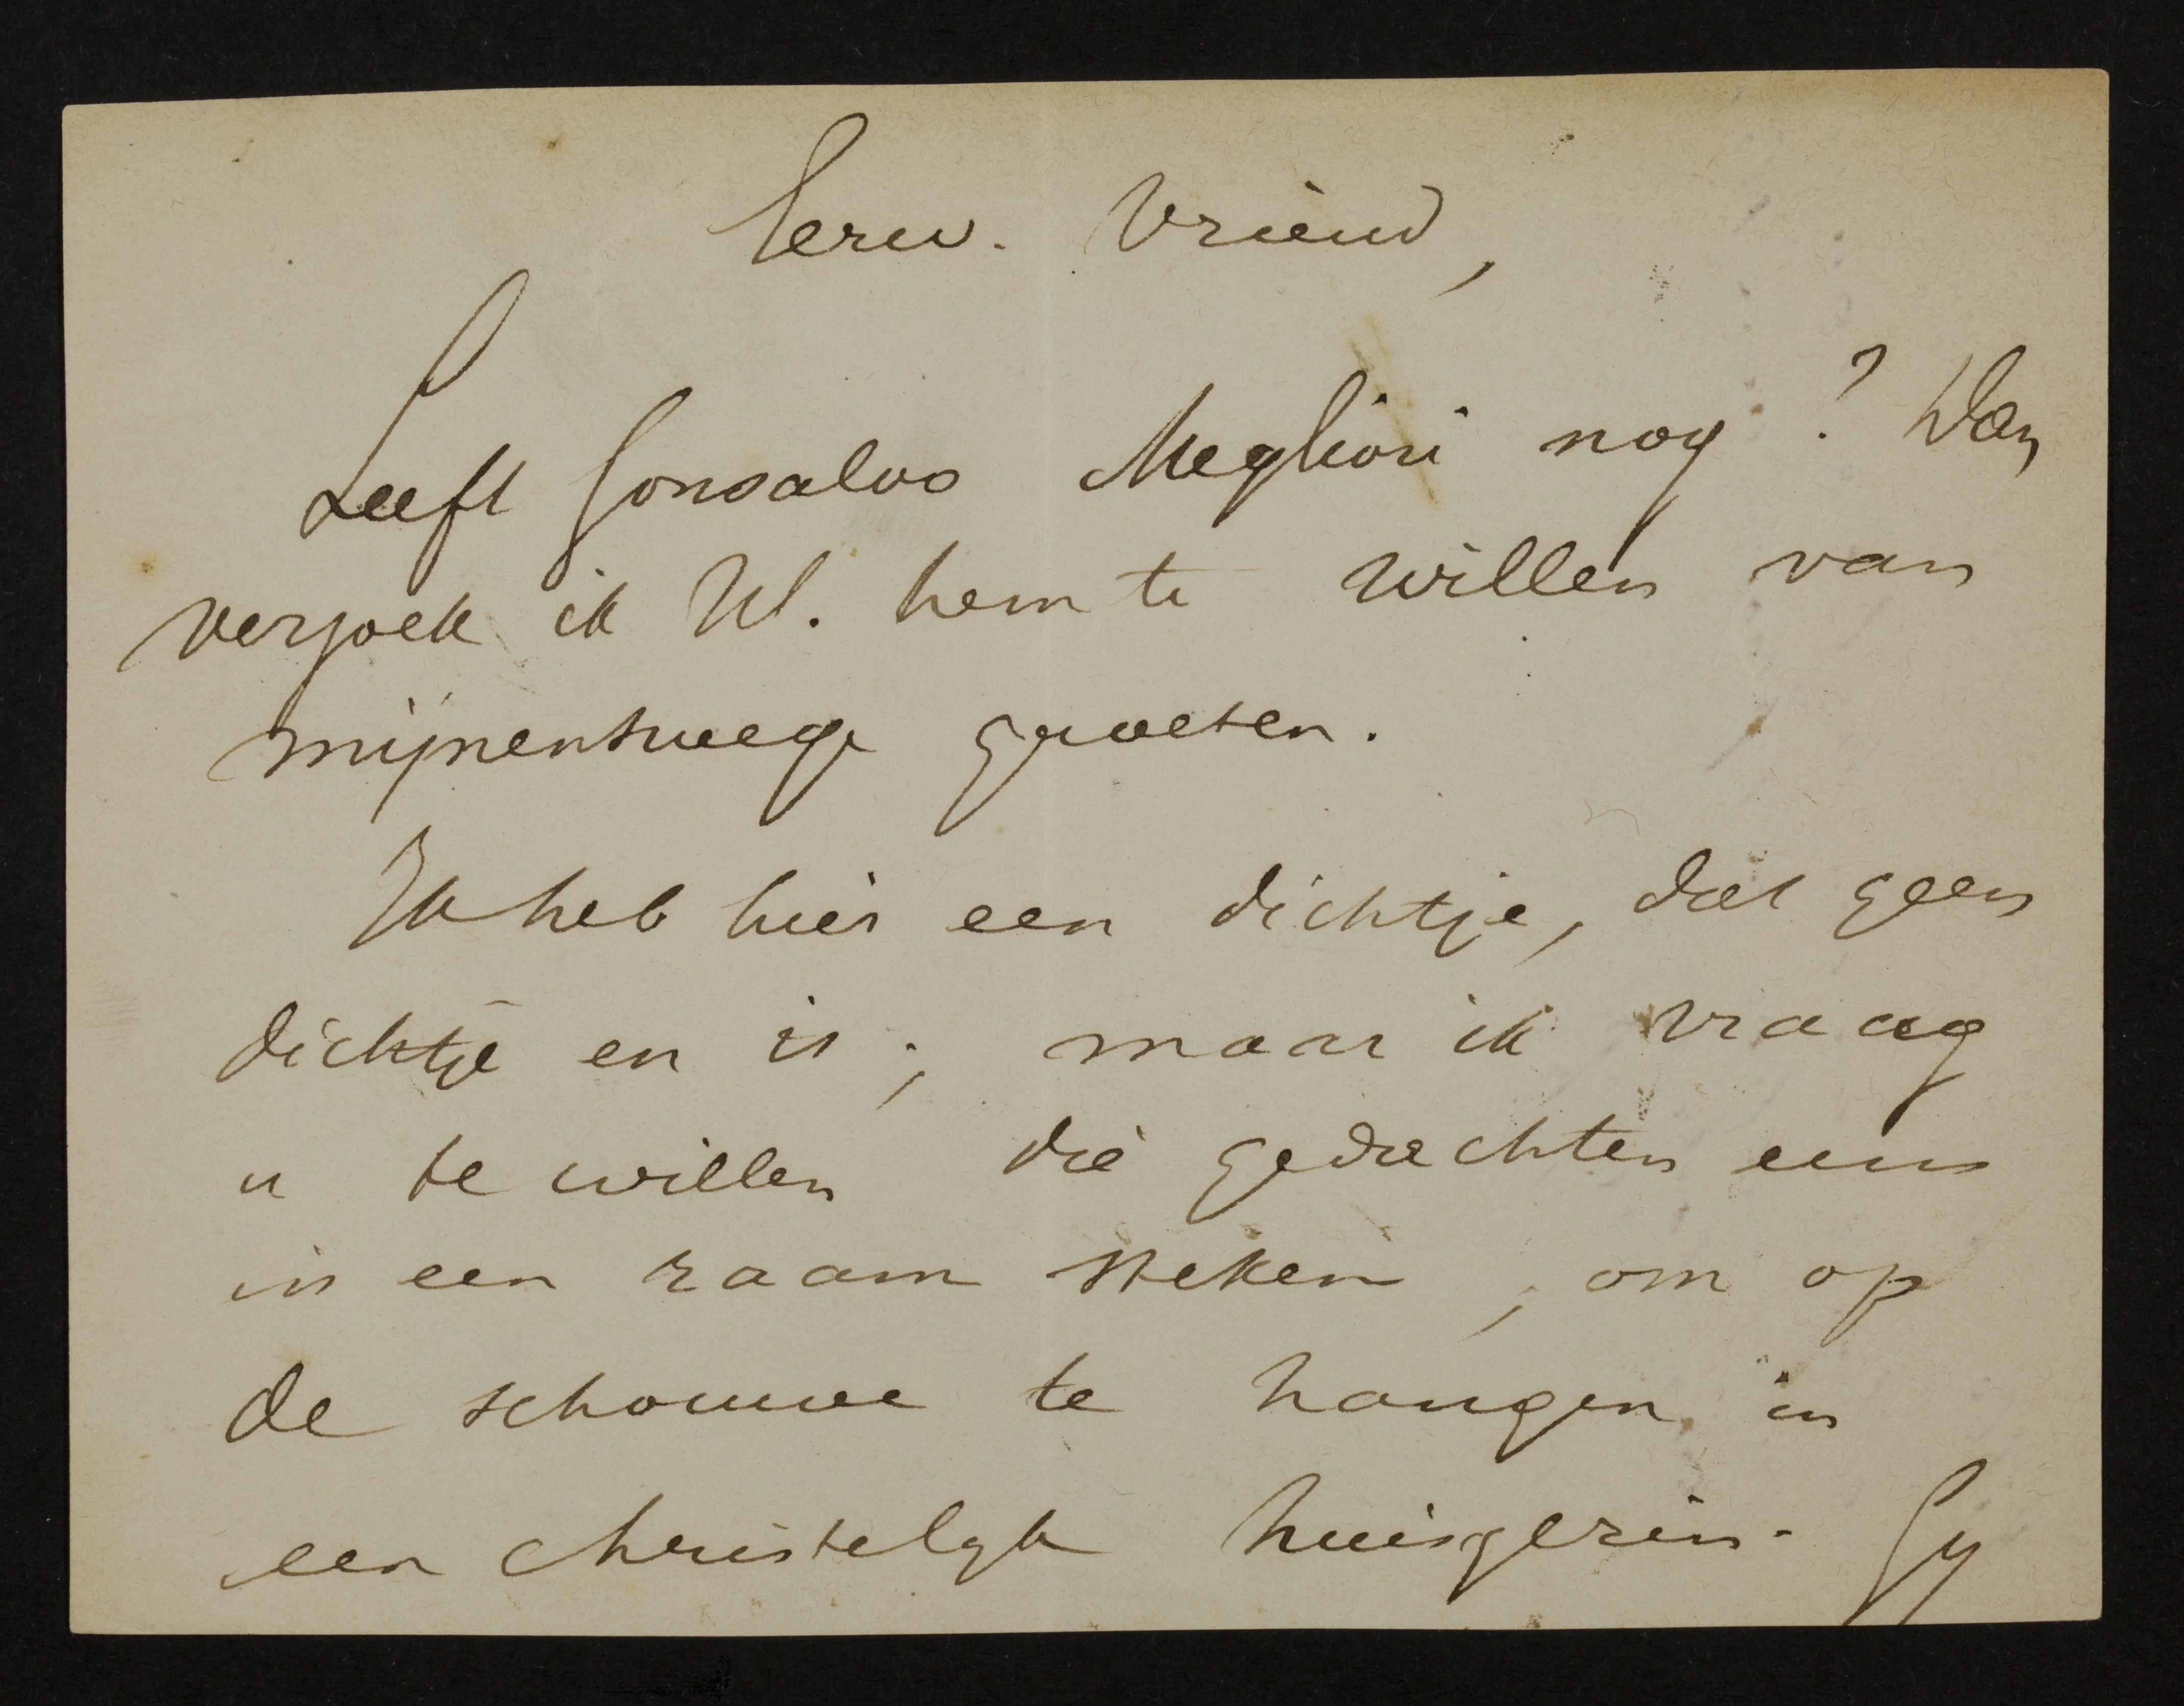 Eerw. Vriend,
Leeft Gonsalvo Megliori nog? Dan
verzoek ik Ul. hem te willen van
mijnentwege groeten.
Ik heb hier een dichtje, dat geen
dichtje en is; maar ik vraag
u te willen die gedachten eens
in een raam steken, om op
de schouwe te hangen in
een christelyk huisgezin. Gy